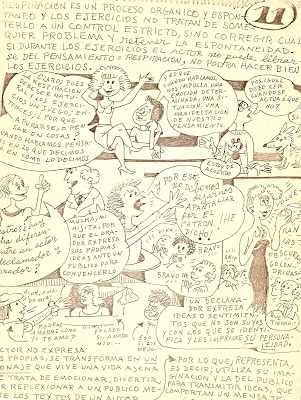 RESPIRACIÓN ES UN PROCESO ORGÁNICO Y ESPON
TÁNEO Y LOS EJERCICIOS NO TRATAN DE SOME
TERLO A UN CONTROL ESTRICTO, SINO CORREGIR CUAL
QUIER PROBLEMA Y SOSTENER LA ESPONTANEIDAD.
SI DURANTE LOS EJERCICIOS EL ACTOR NO PUEDE LIBRAR
SE DEL PENSAMIENTO = RESPIRACIÓN, NO PODRÁ HACER BIEN
LOS EJERCICIOS.
11
CLARO, PERO
RESPIRACIÓN
EJERCI
CIOS
POR QUE
EN COSAS?
NUNDO HABLAMOS PENSA
EN LO QUE DECIMOS
EN COMO LO DECIMOS
Y ES QUE
CUANDO HABLAMOS,
NOS IMPULSA UNA
EMOCIÓN DETER
MINADA; UNA
INTENCIÓN, UNA
MANIFESTACIÓN
DE NUESTRO
PENSAMIENTO
POS, IGUAL
DEBE SER
CUANDO SE
ACTÚA ¿QUE
NO?
ESTOY DE
ACUERDO
HAY
DIFEREN
ENTRE UN ACTOR
DECLAMADOR Y
ORADOR?
MUCHA, MI
HIJITA; POR
QUE EL ORA
DOR EXPRESA
SUS PROPIAS
IDEAS ANTE UN
PÚBLICO PARA
CONVENCERLO
¡Y POR ESO
NO DEBEMOS
DEJARNOS
APANTALLAR
POR EL
PATRÓN
¡HE
DICHO!
¡VIVA!
BRAVO
BRAVO
UN DECLAMA
DOR EXPRESA
IDEAS O SENTIMIEN
TOS QUE NO SON SUYOS
CON LOS QUE SE IDENTI
FICA Y LES IMPRIME SU PERSONA
LIDAD
TIERRA
PODRÁS
AMARME COMO
YO TE AMO?
ESO
DIJO
ACTOR NO EXPRESA
S PROPIAS, SE TRANSFORMA EN UN
SONAJE QUE VIVE UNA VIDA AJENA
E TRATA DE EMOCIONAR, DIVERTIR,
R REFLEXIONAR A UN PÚBLICO ME
TE LOS TEXTOS DE UN AUTOR
POR LO QUE, REPRESENTA,
ES DECIR; UTILIZA SU IMA
GINACIÓN Y LA DEL PÚBLICO
PARA TRANSMITIR IDEAS, QUE
COMPORTAN UN MENSAJE